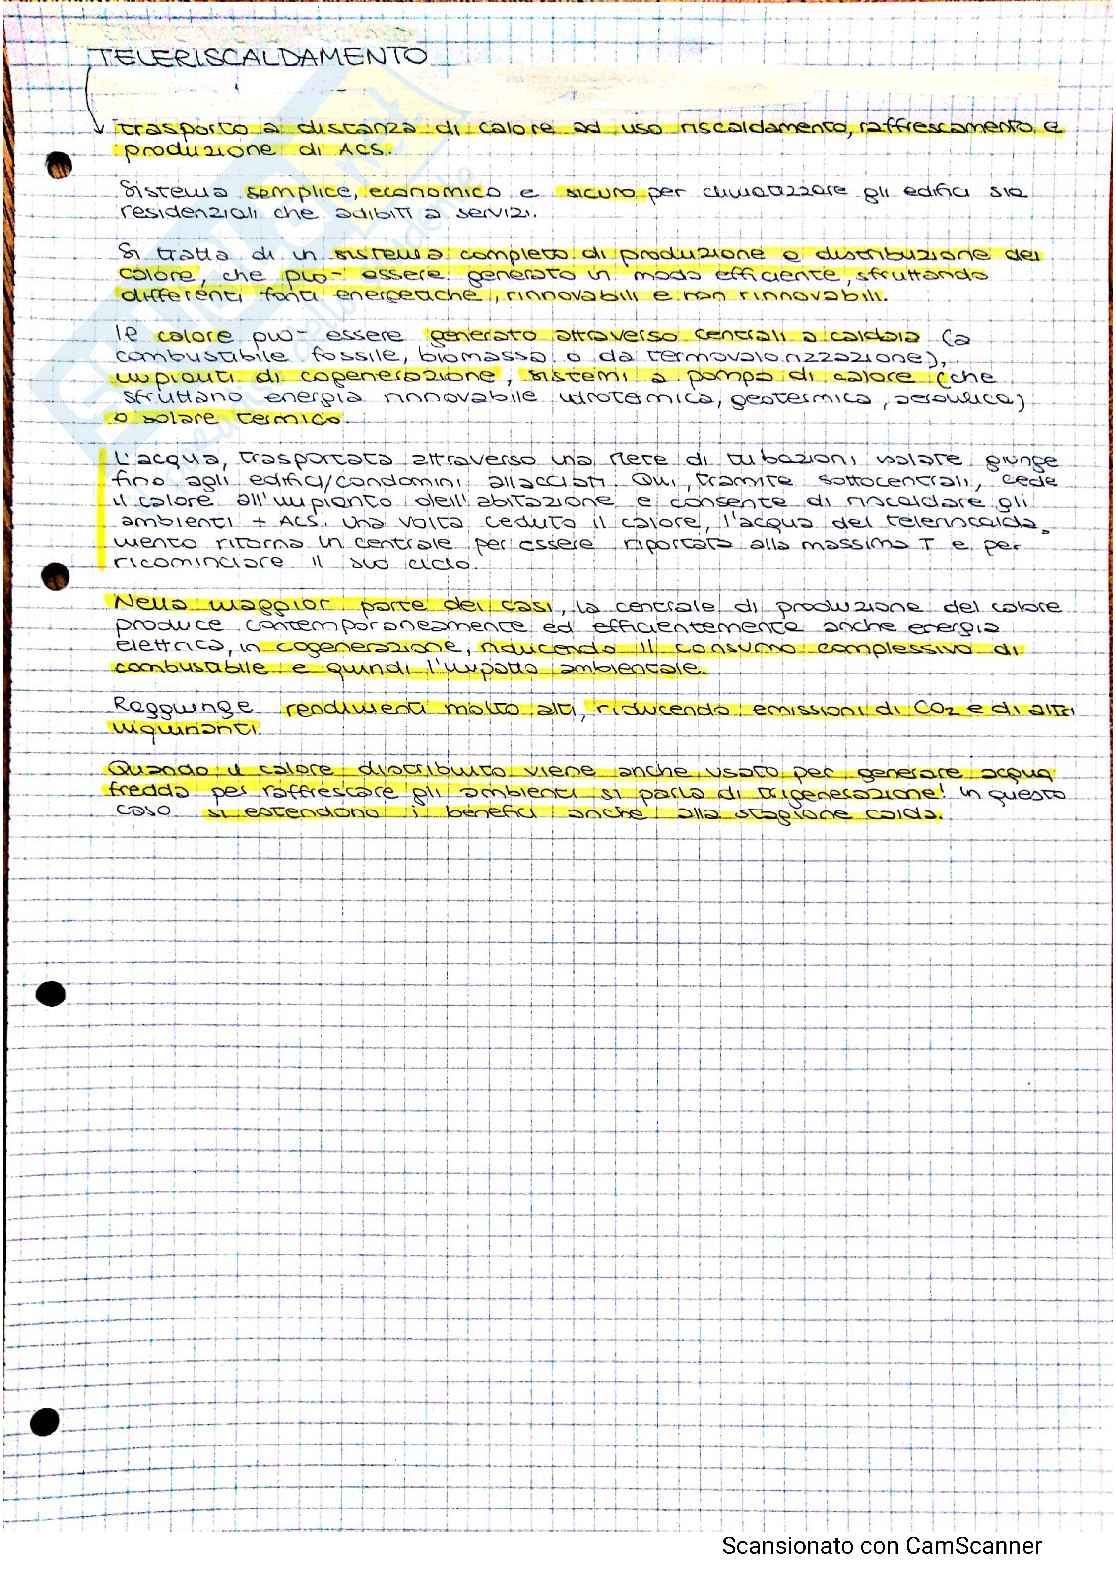 TELERISCALDAMENTO
trasporto a distanza di calore ad uso riscaldamento, raffrescamento e
produzione di ACS.
Sistema semplice, economico e sicuro per climatizzare gli edifici sia
residenziali che adibiti a servizi.
Si tratta di un sistema completo di produzione e distribuzione del
calore, che puo' essere generato in modo efficiente, sfruttando
differenti fonti energetiche, rinnovabili e non rinnovabili.
Il calore puo' essere generato attraverso centrali a caldaia (a
combustibile fossile, biomassa o da termovalorizzazione),
impianti di cogenerazione, sistemi a pompa di calore (che
sfruttano energia rinnovabile idrotermica, geotermica, aeraulica)
o solare termico.
L'acqua, trasportata attraverso una rete di tubazioni isolate giunge
fino agli edifici/condomini allacciati. Qui, tramite sottocentrali, cede
il calore all'impianto dell'abitazione e consente di riscaldare gli
ambienti + ACS. Una volta ceduto il calore, l'acqua del teleriscalda
mento ritorna in centrale per essere riportata alla massima T e per
ricominciare il suo ciclo.
Nella maggior parte dei casi, la centrale di produzione del calore
produce contemporaneamente ed efficientemente anche energia
elettrica, in cogenerazione, riducendo il consumo complessivo di
combustibile e quindi l'impatto ambientale.
Raggiunge rendimenti molto alti, riducendo emissioni di CO2 e di altri
inquinanti.
Quando il calore distribuito viene anche usato per generare acqua
fredda per raffrescare gli ambienti si parla di trigenerazione! In questo
caso si estendono i benefici anche alla stagione calda.
Scansionato con CamScanner